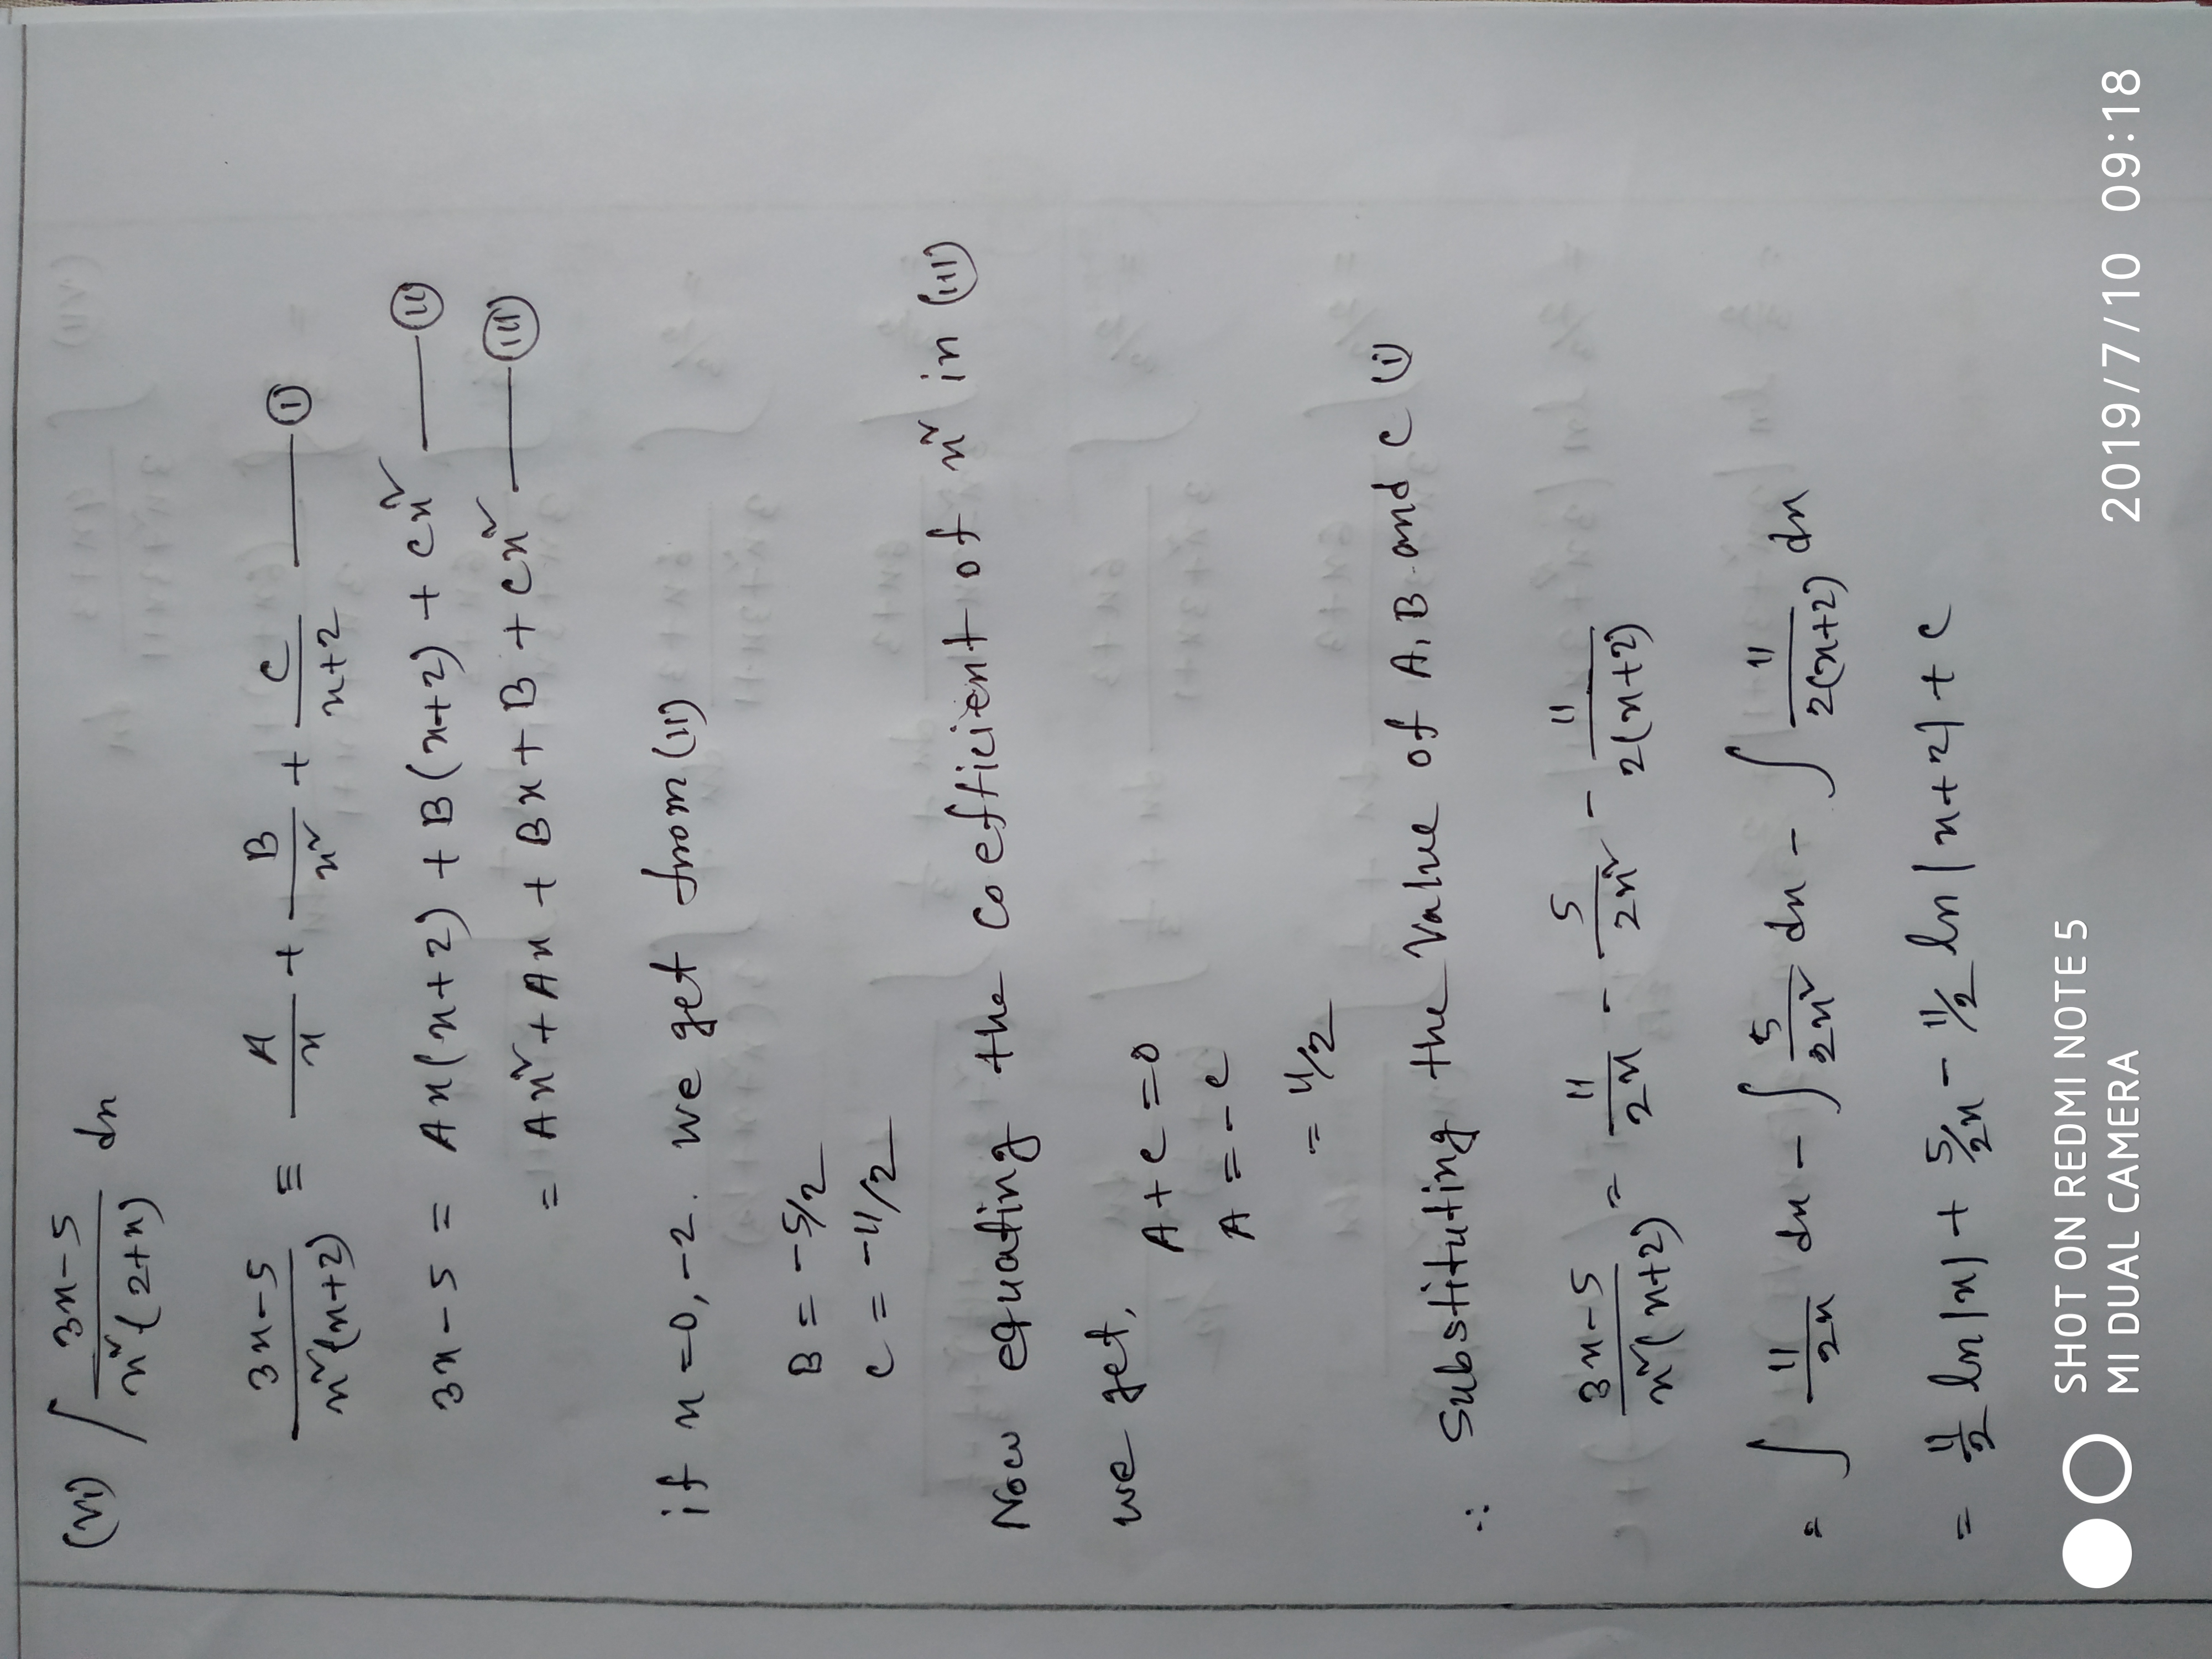 (vi) ∫ (3x-5)/(x²(2+x)) dx
(3x-5)/(x²(x+2)) ≡ A/x + B/x² + C/(x+2) —— (i)
3x-5 = Ax(x+2) + B(x+2) + Cx² —— (ii)
= Ax² + Ax + Bx + B + Cx² —— (iii)
if x=0, -2. we get from (ii)
B = -5/2
C = -11/2
Now equating the coefficient of x² in (iii)
we get,
A+C=0
A = -C
= 11/2
∴ Substituting the value of A, B and C (i)
(3x-5)/(x²(x+2)) = 11/2x - 5/2x² - 11/2(x+2)
= ∫ 11/2x dx - ∫ 5/2x² dx - ∫ 11/2(x+2) dx
= 11/2 ln|x| + 5/2x - 11/2 ln|x+2| + C
SHOT ON REDMI NOTE 5
MI DUAL CAMERA
2019/7/10 09:18